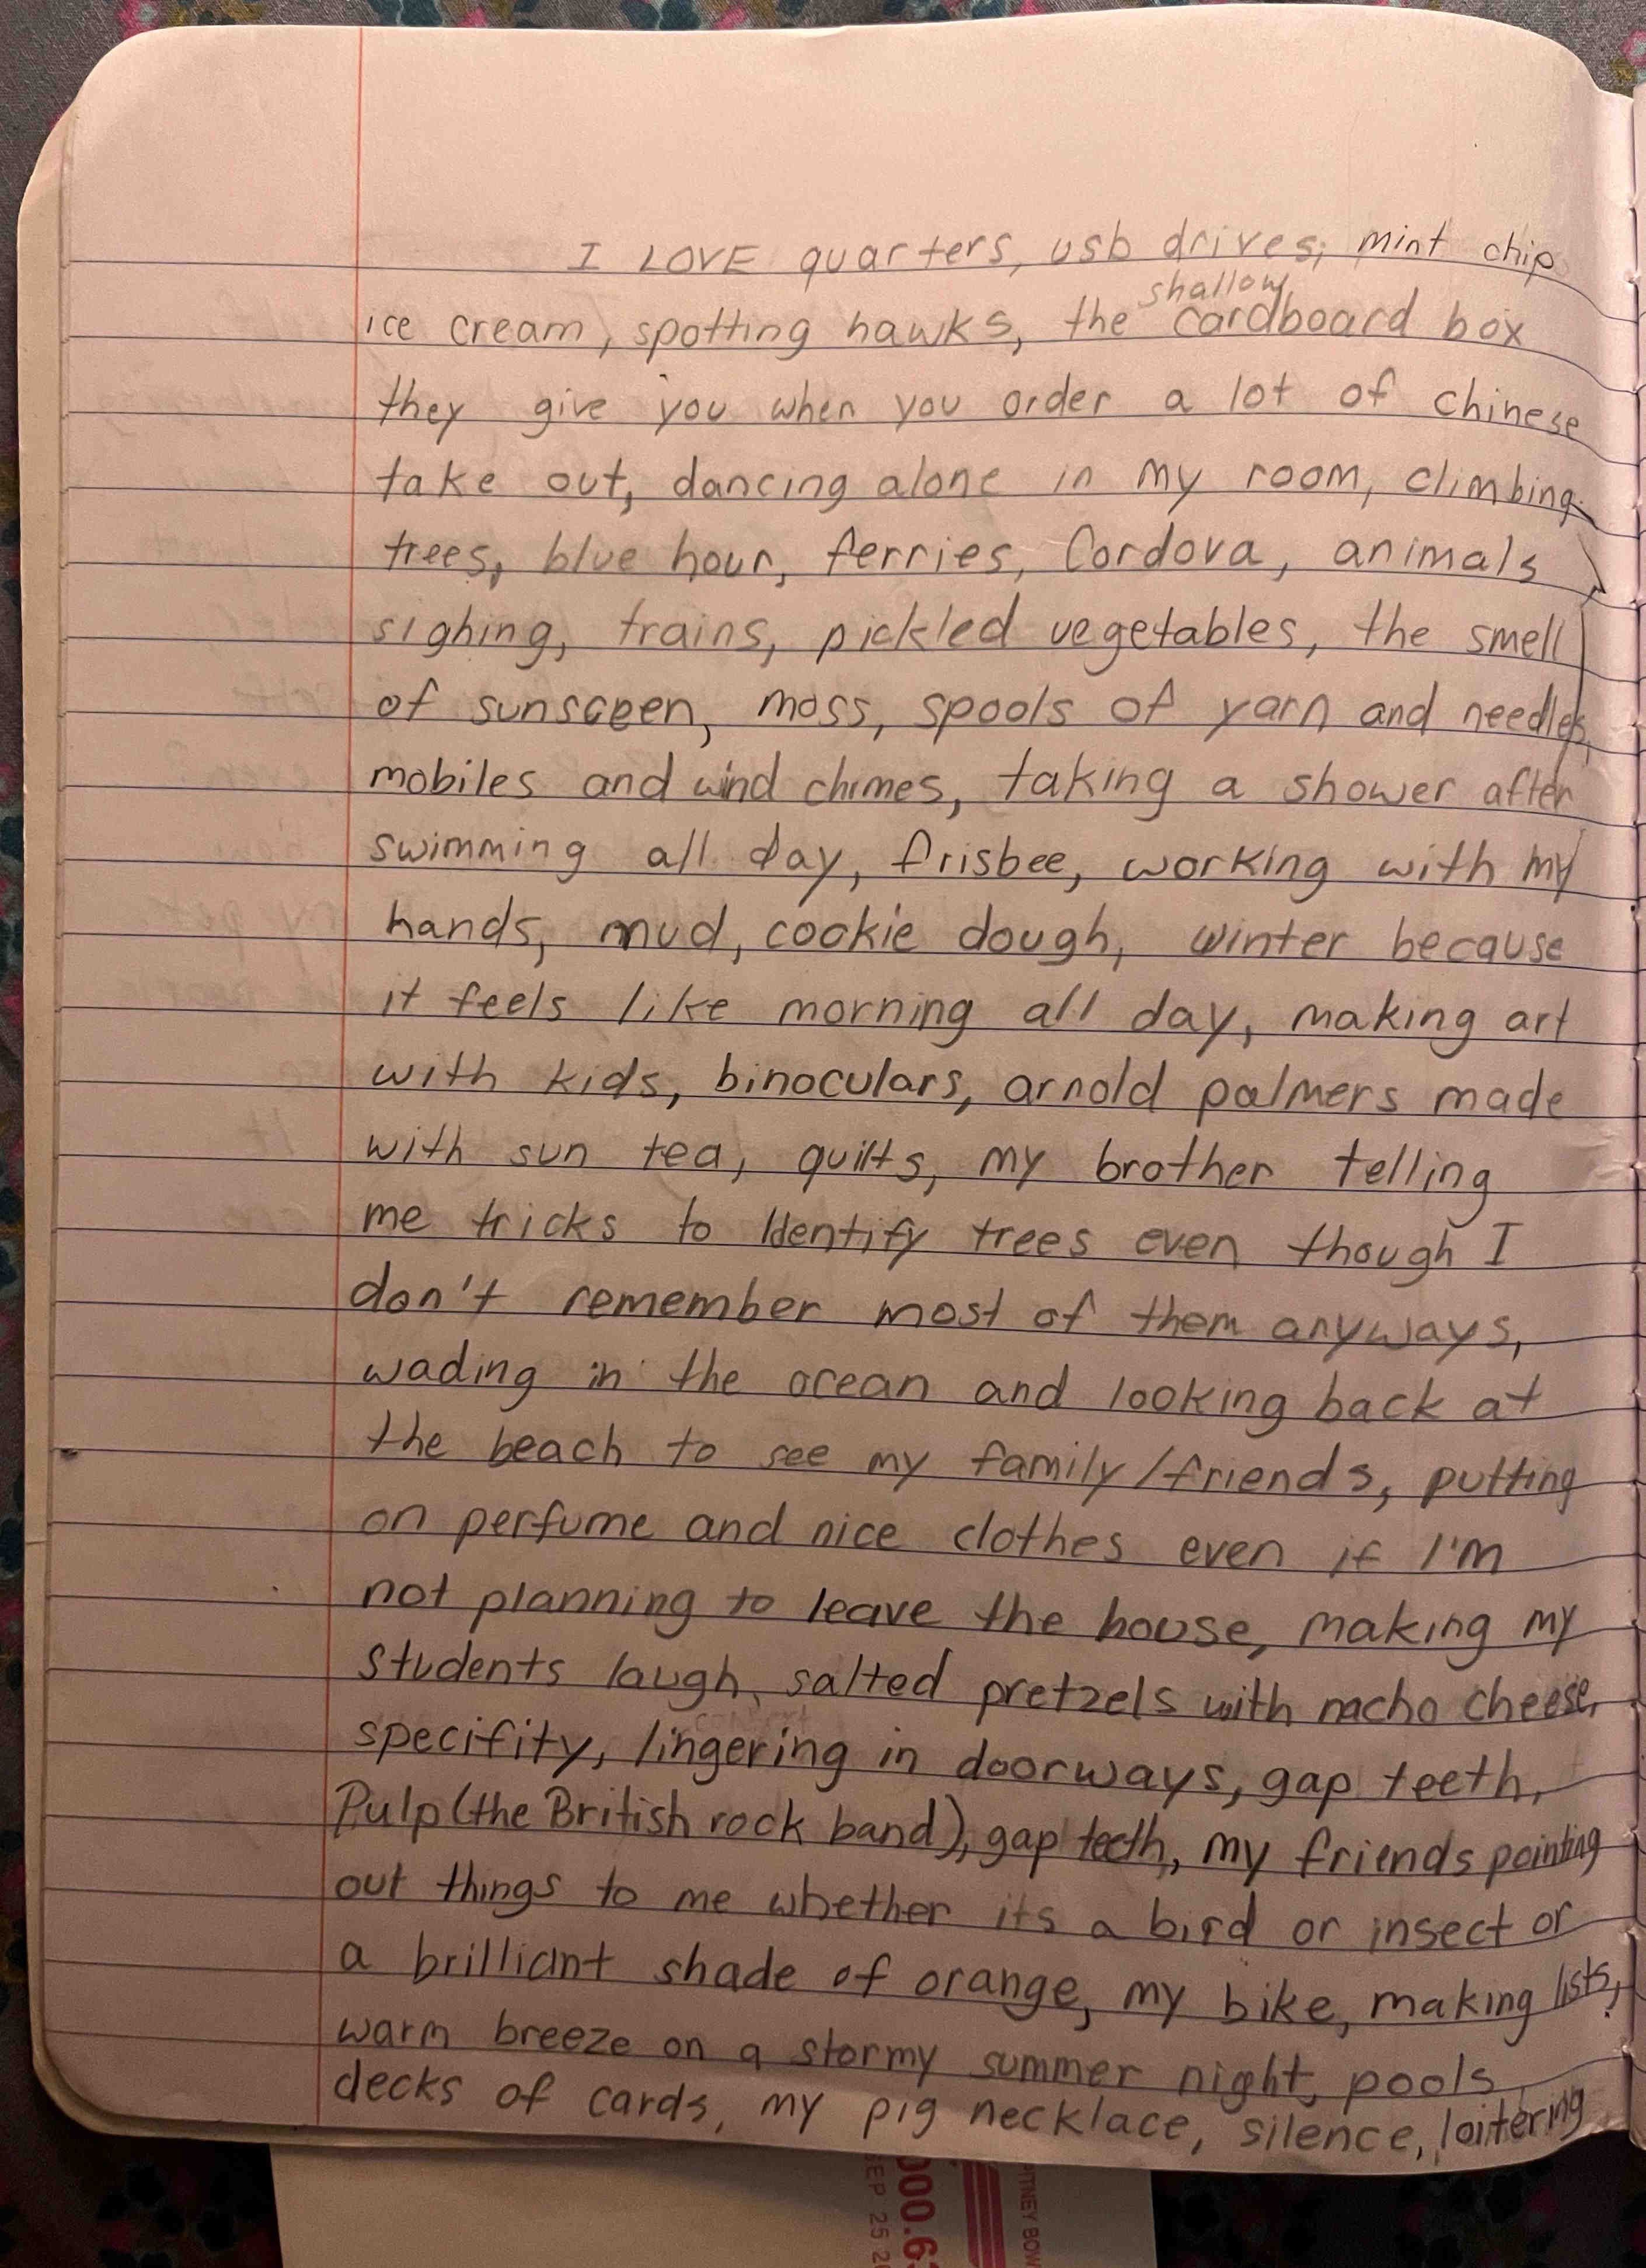 I LOVE quarters, usb drives, mint chip
ice cream, spotting hawks, the shallow cardboard box
they give you when you order a lot of chinese
take out, dancing alone in my room, climbing
trees, blue hour, ferries, Cordova, animals
sighing, trains, pickled vegetables, the smell
of sunsceen, moss, spools of yarn and needles,
mobiles and wind chimes, taking a shower after
swimming all day, frisbee, working with my
hands, mud, cookie dough, winter because
it feels like morning all day, making art
with kids, binoculars, arnold palmers made
with sun tea, quilts, my brother telling
me tricks to Identify trees even though I
don't remember most of them anyways,
wading in the ocean and looking back at
the beach to see my family/friends, putting
on perfume and nice clothes even if I'm
not planning to leave the house, making my
students laugh, salted pretzels with nacho cheese,
specifity, lingering in doorways, gap teeth,
Pulp (the British rock band), gap teeth, my friends pointing
out things to me whether its a bird or insect or
a brilliant shade of orange, my bike, making lists,
warm breeze on a stormy summer night, pools,
decks of cards, my pig necklace, silence, loitering
000.6
SEP 25
PITNEY BOW